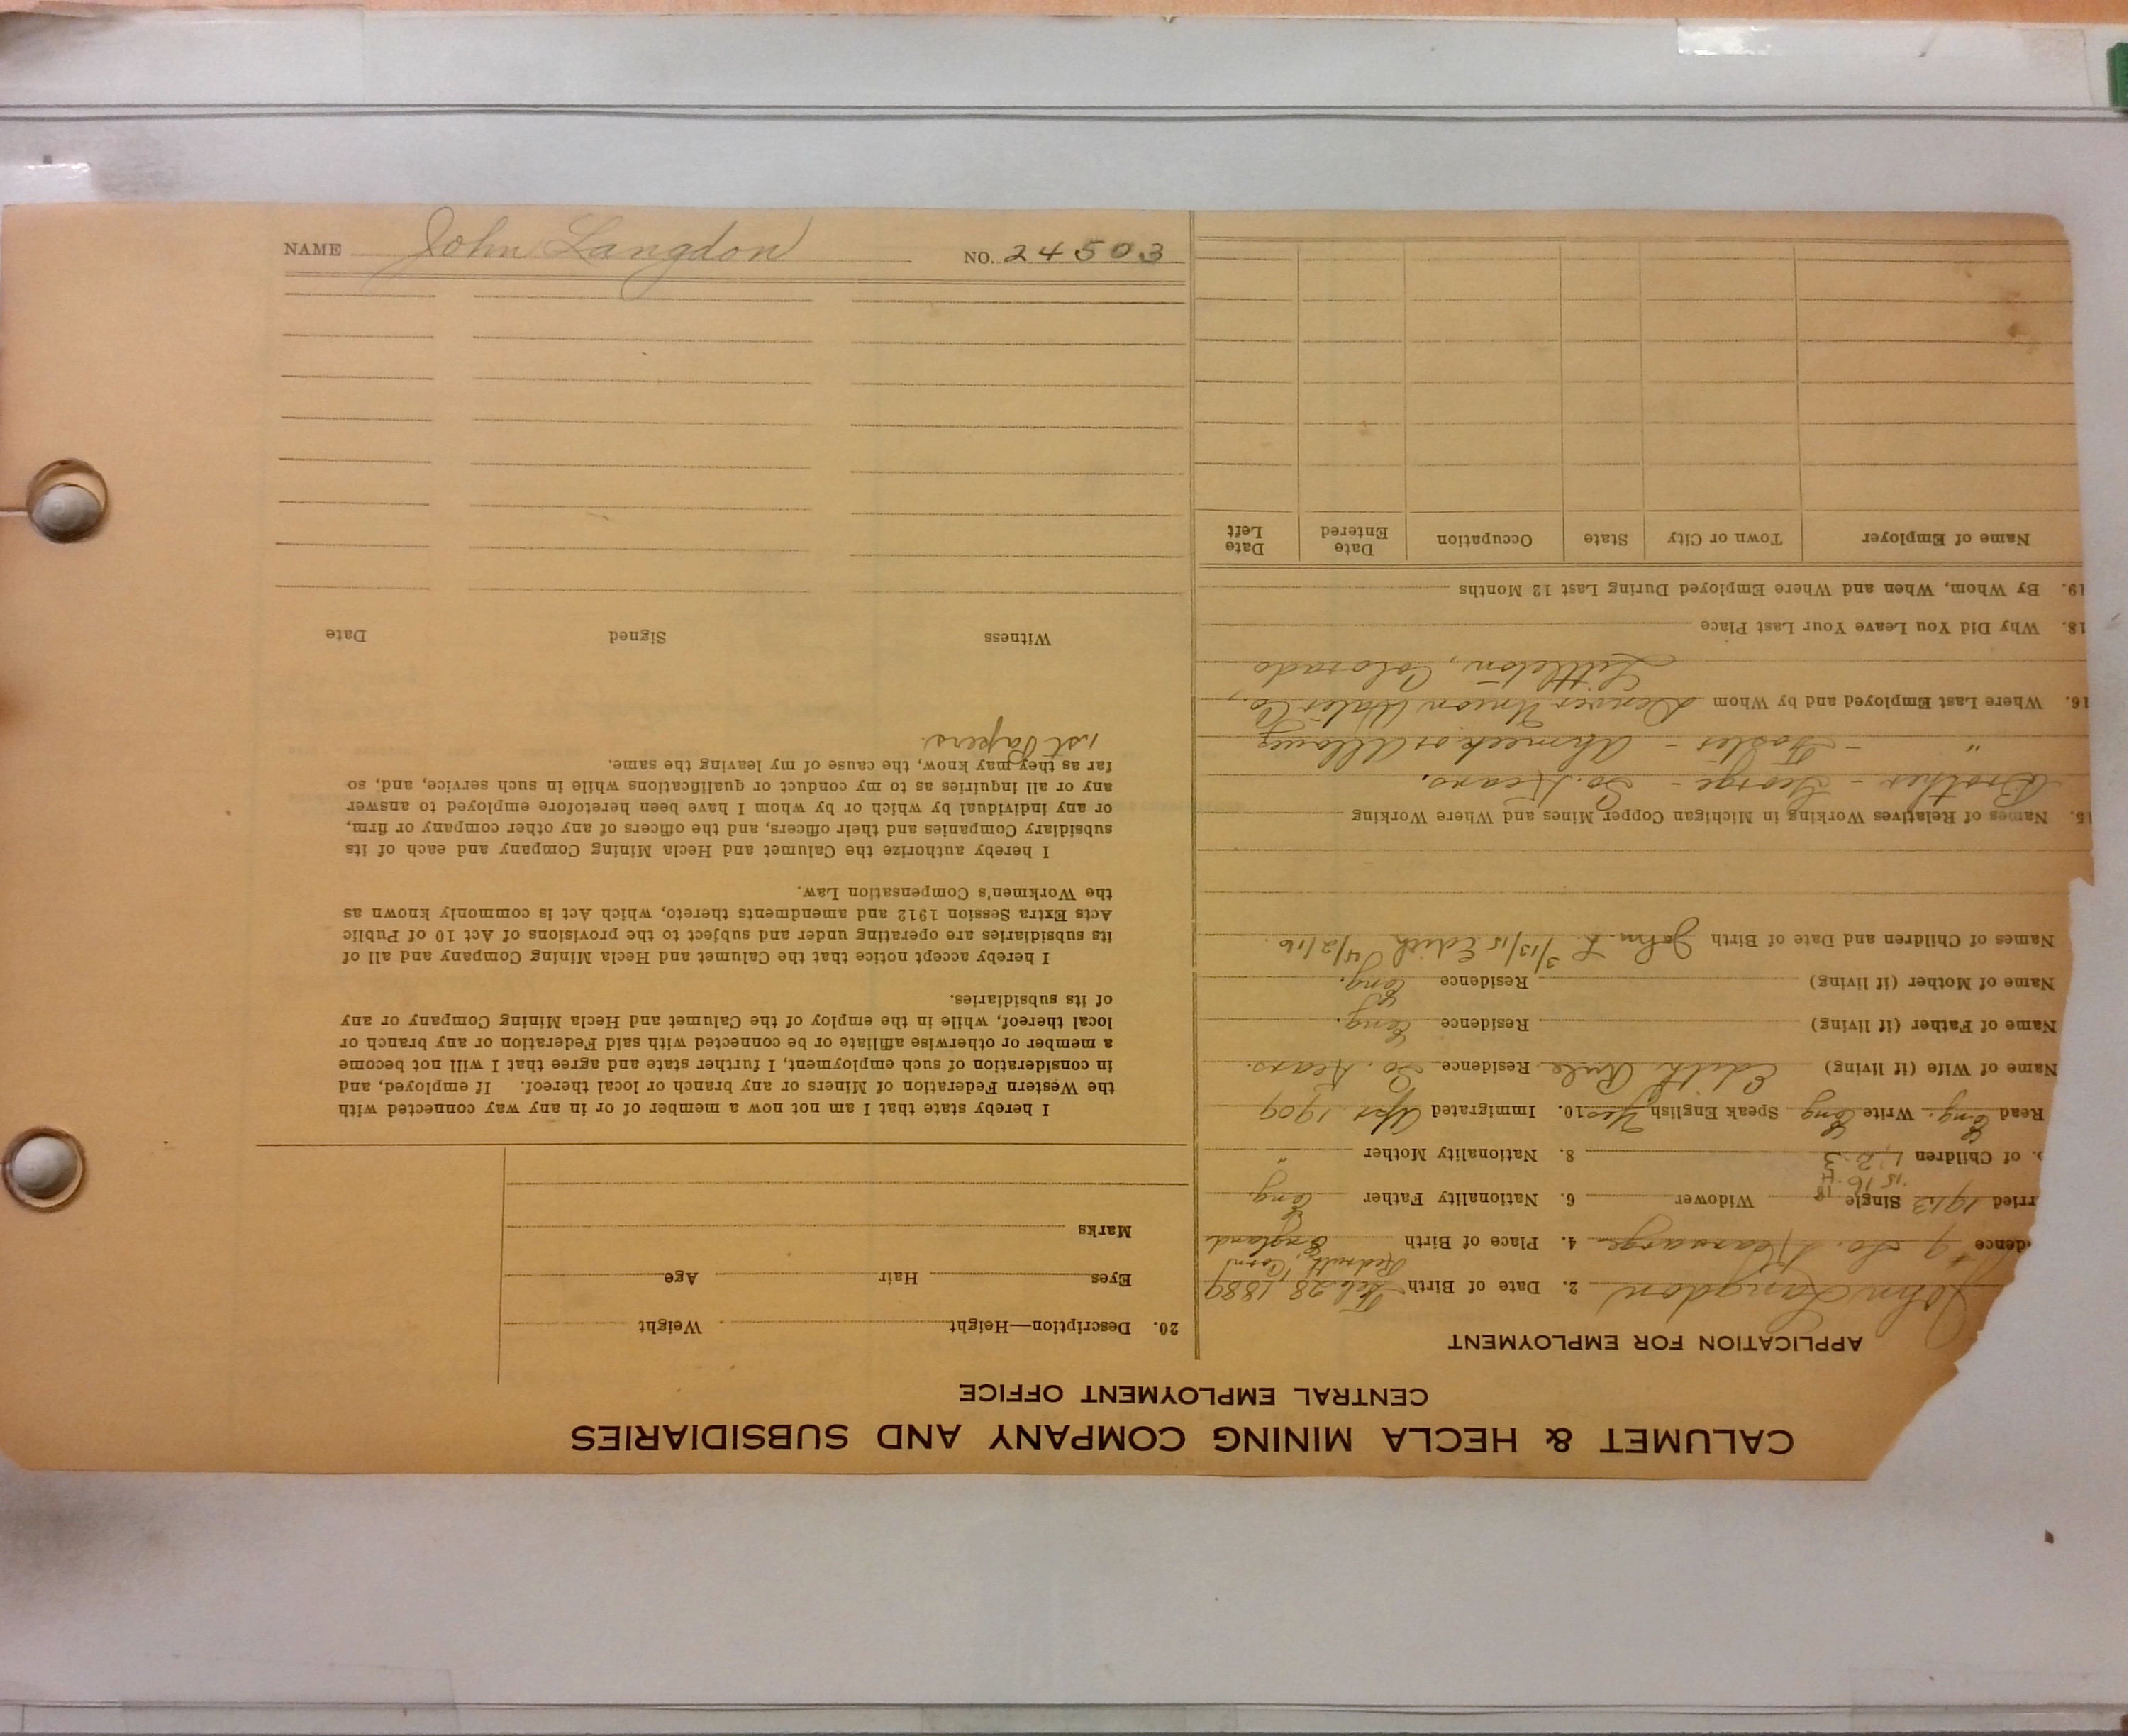 CALUMET & HECLA MINING COMPANY AND SUBSIDIARIES
CENTRAL EMPLOYMENT OFFICE
APPLICATION FOR EMPLOYMENT
John Langdon 2. Date of Birth Feb 28, 1889
Redruth, Corn'l
dence #9 So. Kearsarge 4. Place of Birth England
rried 1913 Single Widower 6. Nationality Father Eng
15 16 18
o. of Children 1, 2 3 8. Nationality Mother "
Read Eng. Write Eng Speak English Yes 10. Immigrated Apr 1909
Name of Wife (if living) Edith Residence So. Kears.
Name of Father (if living) Residence Eng.
Name of Mother (if living) Residence Eng.
Names of Children and Date of Birth John 3/13/15 Edith 4/2/16.
15. Names of Relatives Working in Michigan Copper Mines and Where Working
Brother - George - So. Kears.
" - Foster - Ahmeek or Allouez
16. Where Last Employed and by Whom Denver Union Water Co.,
Littleton, Colorado
18. Why Did You Leave Your Last Place
19. By Whom, When and Where Employed During Last 12 Months
Name of Employer Town or City State Occupation Date Entered Date Left
20. Description—Height Weight
Eyes Hair Age
Marks
I hereby state that I am not now a member of or in any way connected with
the Western Federation of Miners or any branch or local thereof. If employed, and
in consideration of such employment, I further state and agree that I will not become
a member or otherwise affiliate or be connected with said Federation or any branch or
local thereof, while in the employ of the Calumet and Hecla Mining Company or any
of its subsidiaries.
I hereby accept notice that the Calumet and Hecla Mining Company and all of
its subsidiaries are operating under and subject to the provisions of Act 10 of Public
Acts Extra Session 1912 and amendments thereto, which Act is commonly known as
the Workmen's Compensation Law.
I hereby authorize the Calumet and Hecla Mining Company and each of its
subsidiary Companies and their officers, and the officers of any other company or firm,
or any individual by which or by whom I have been heretofore employed to answer
any or all inquiries as to my conduct or qualifications while in such service, and, so
far as they may know, the cause of my leaving the same.
1st Papers.
Witness Signed Date
NAME John Langdon NO. 24503